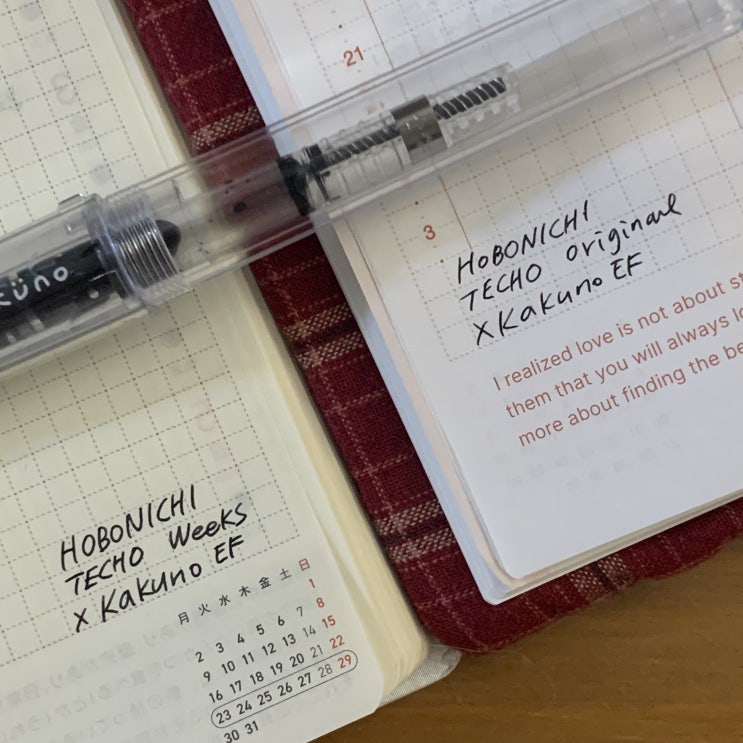 21
3
HOBONICHI
TECHO Original
X Kakuno EF
I realized love is not about
them that you will always
more about finding the
küno
HOBONICHI
TECHO Weeks
X Kakuno EF
月 火 水 木 金 土 日
1
2 3 4 5 6 7 8
9 10 11 12 13 14 15
16 17 18 19 20 21 22
23 24 25 26 27 28 29
30 31